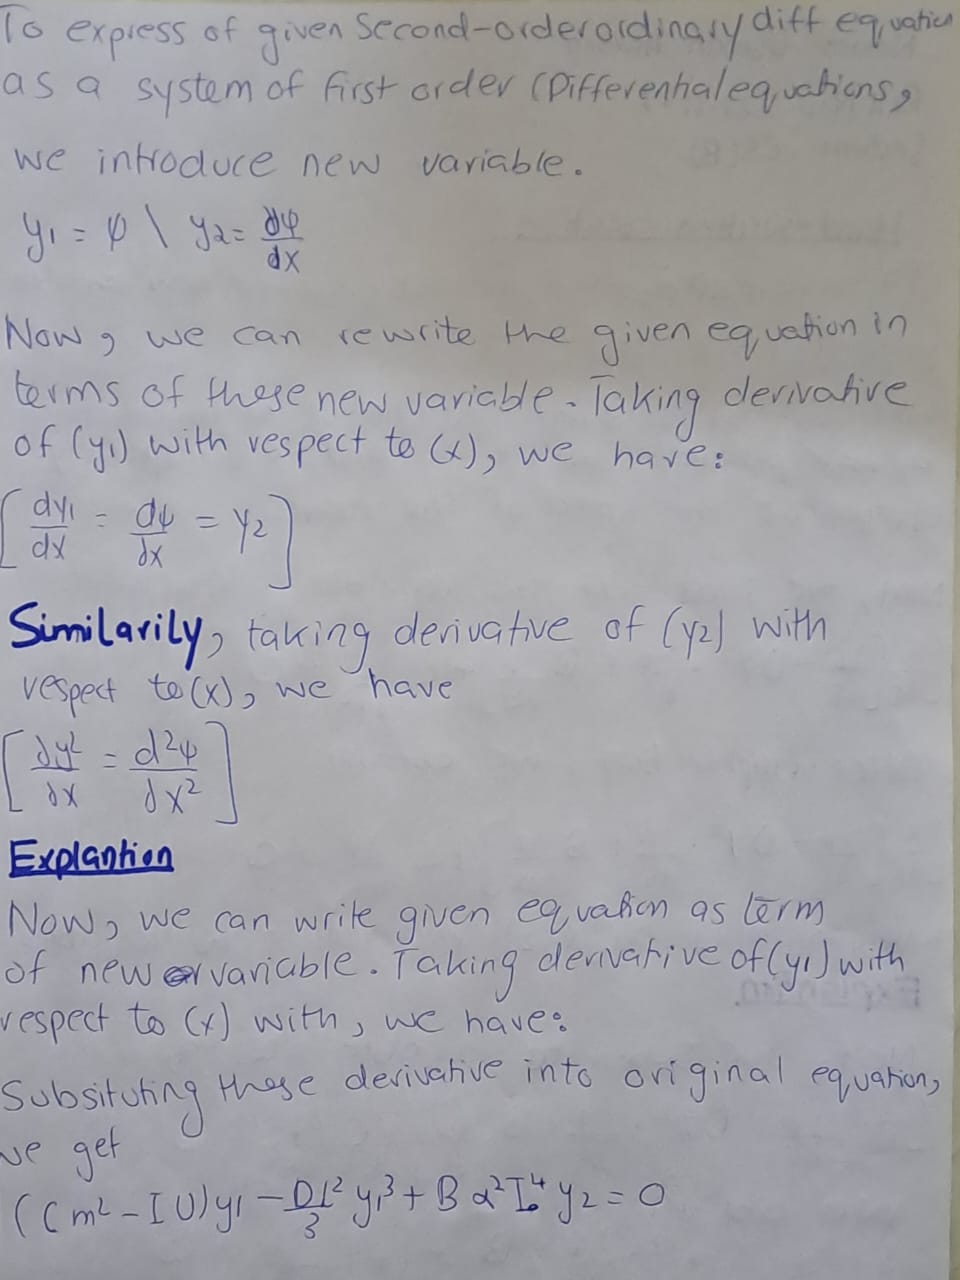 To express of given Second-order ordinary diff equation
as a system of first order (Differential equations,
we introduce new variable.
y1 = φ \ y2 = dφ/dx
Now, we can rewrite the given equation in
terms of these new variable. Taking derivative
of (y1) with respect to (x), we have:
[dy1/dx = dψ/dx = y2]
Similarily, taking derivative of (y2) with
respect to (x), we have
[dy2/dx = d²ψ/dx²]
Explantion
Now, we can write given equation as term
of new variable. Taking derivative of (y1) with
respect to (x) with, we have:
Subsituting these derivative into original equation,
we get
((m² - IU)y1 - DI²/3 y1³ + B α² I₀⁴ y2 = 0